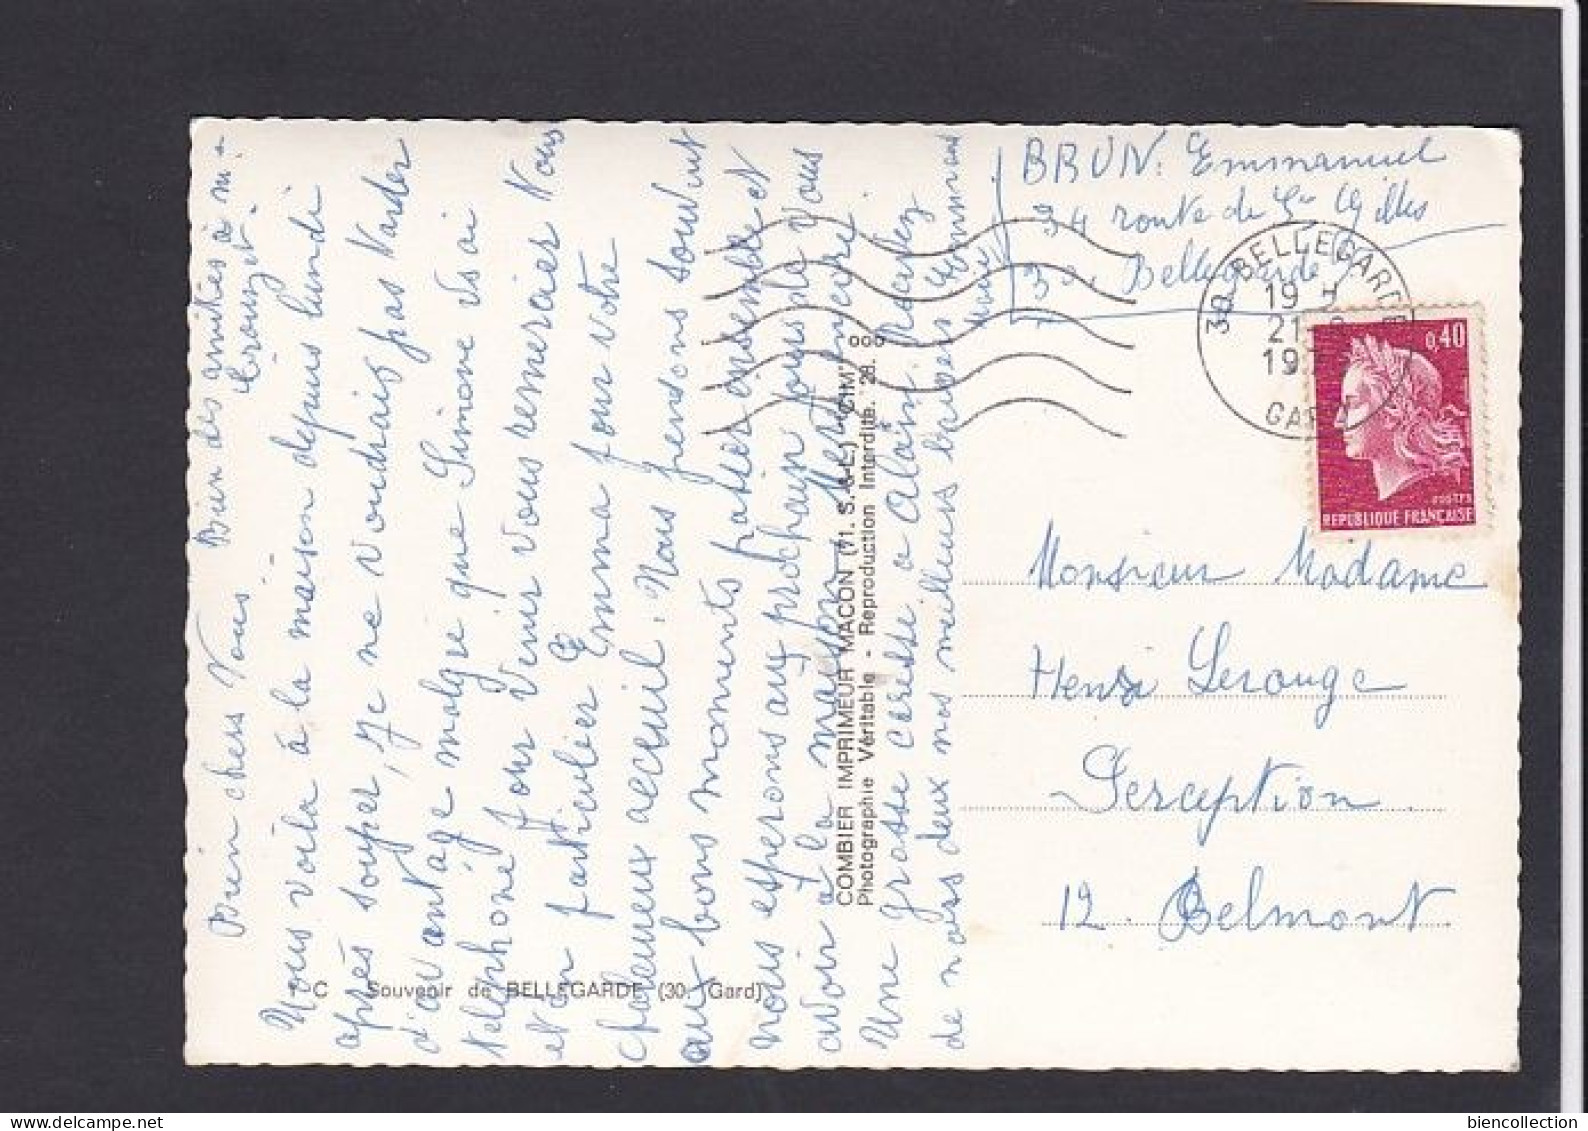 Bien chers Vous. Bien des amitiés à m.
Crouzet.
Nous voila à la maison depuis lundi
après souper, je ne voudrais pas tarder
d'avantage malgre que Simone vs ai
telephoné pour venir vous remercier Vous
et en particulier Emma pour votre
chaleureux accueil. Nous pensons souvent
aux bons moments passer ensemble et
nous esperons au prochain tous ple vous
avoir à la maison
Une grosse caresse a Alain. Recevez
de nous deux nos meilleurs baisers
BRUN. Emmanuel
34 route de St Gilles
30. Bellegarde
30 BELLEGARDE
19 H
21
19
GARD
0,40
POSTES
REPUBLIQUE FRANÇAISE
Monsieur Madame
Henri Lerouge
Perception
12. Belmont
COMBIER IMPRIMEUR MACON (71. S.-&-L.) "CIM"
Photographie Véritable - Reproduction Interdite. 28.
C Souvenir de BELLEGARDE (30. Gard)
biencollection